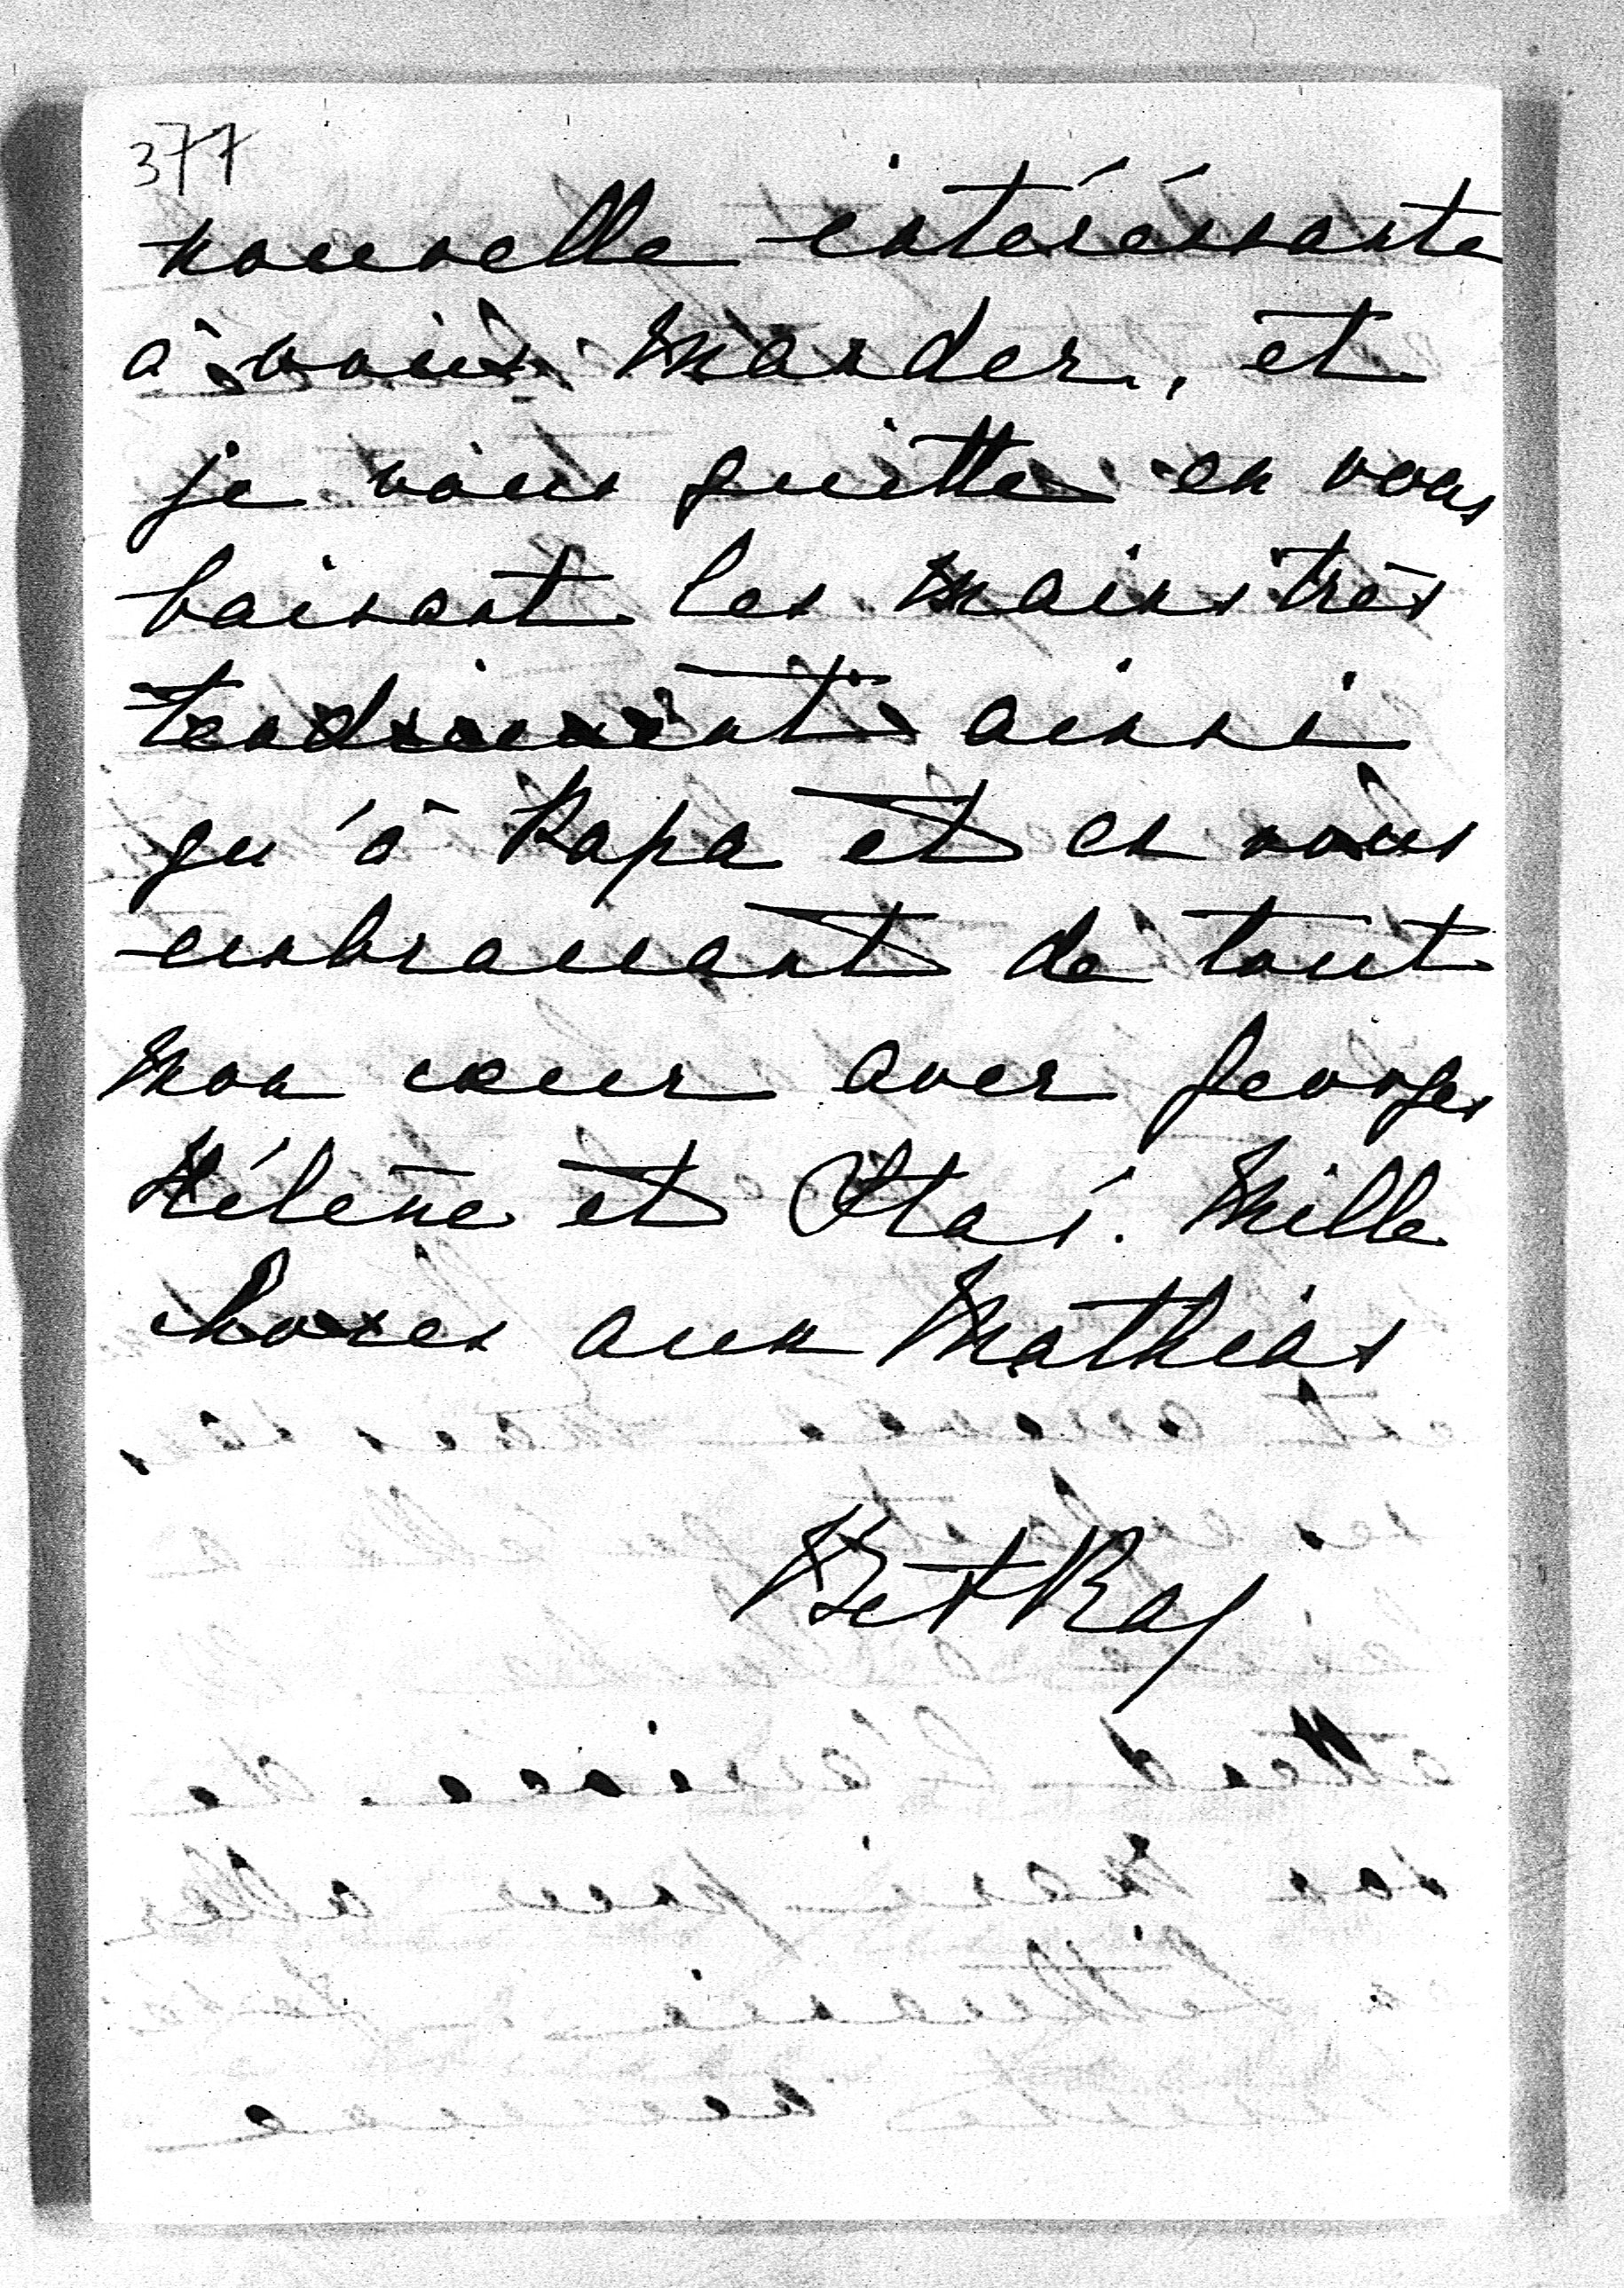 377
nouvelle intéréssante
à vous mander, et
je vous quitte en vous
baisant les mains très
tendrement ainsi
qu'à Papa et en vous
embrassant de tout
mon cœur avec Georges
Hélène et Staś. Mille
choses aux Mathias